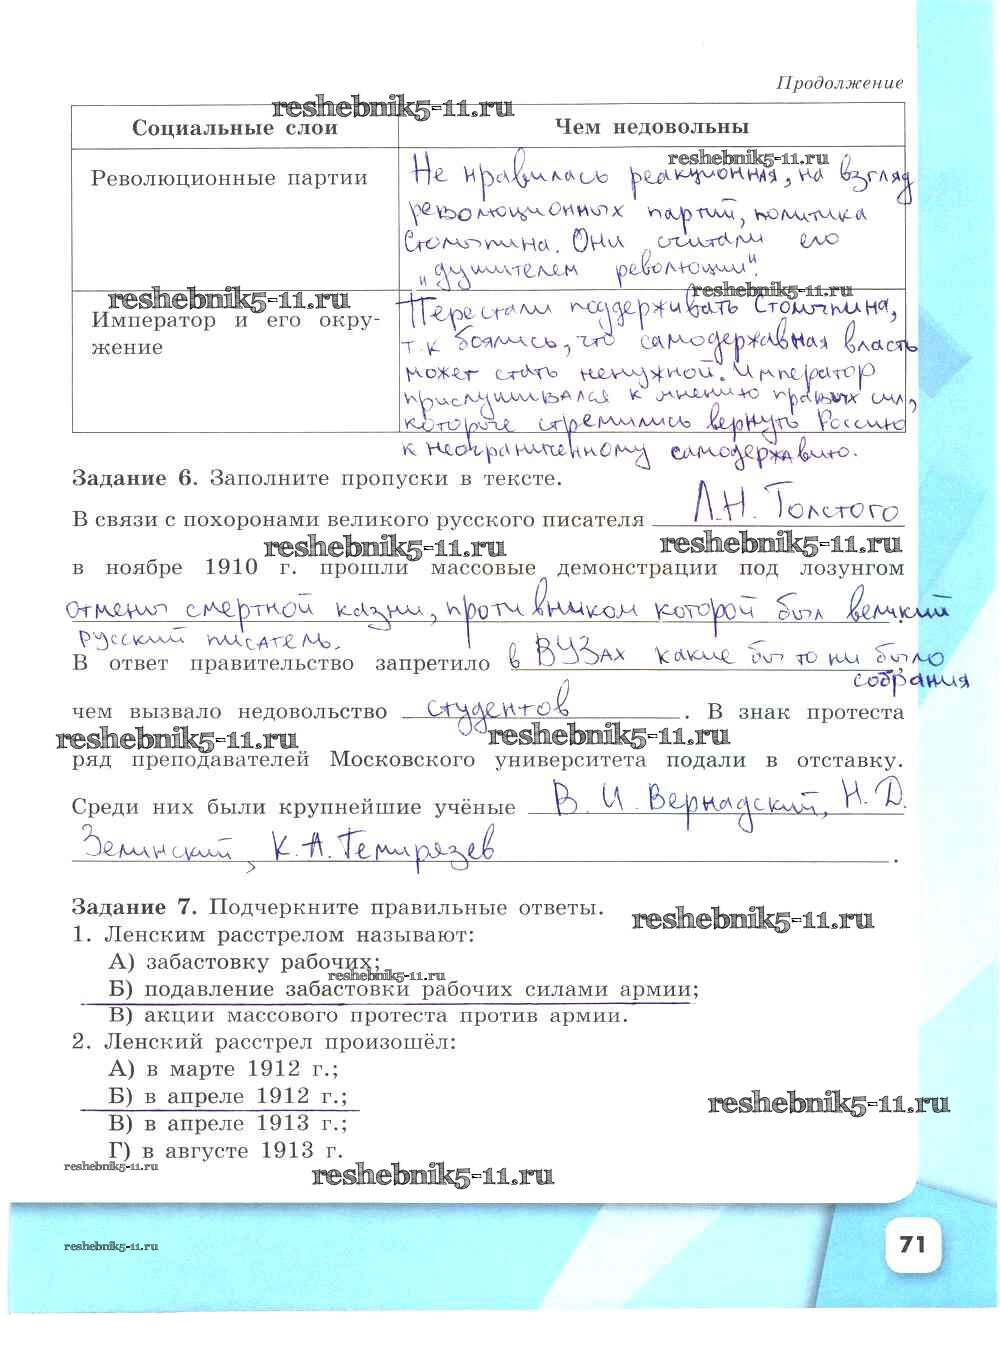 Продолжение
reshebnik5-11.ru
Социальные слои
Чем недовольны
reshebnik5-11.ru
Революционные партии
Не нравилась реакционная, на взгляд
революционных партий, политика
Столыпина. Они считали его
„душителем революции".
reshebnik5-11.ru
reshebnik5-11.ru
Император и его окру-
жение
Перестали поддерживать Столыпина,
т.к боялись, что самодержавная власть
может стать ненужной. Император
прислушивался к мнению правых сил,
которые стремились вернуть Россию
к неограниченному самодержавию.
Задание 6. Заполните пропуски в тексте.
В связи с похоронами великого русского писателя Л.Н. Толстого
reshebnik5-11.ru
reshebnik5-11.ru
в ноябре 1910 г. прошли массовые демонстрации под лозунгом
отмены смертной казни, противником которой был великий
русский писатель.
В ответ правительство запретило в ВУЗах какие бы то ни было
собрания
чем вызвало недовольство студентов. В знак протеста
reshebnik5-11.ru
reshebnik5-11.ru
ряд преподавателей Московского университета подали в отставку.
Среди них были крупнейшие учёные В. И. Вернадский, Н. Д.
Зелинский, К. А. Темирязев.
Задание 7. Подчеркните правильные ответы.
reshebnik5-11.ru
1. Ленским расстрелом называют:
А) забастовку рабочих;
reshebnik5-11.ru
Б) подавление забастовки рабочих силами армии;
В) акции массового протеста против армии.
2. Ленский расстрел произошёл:
А) в марте 1912 г.;
Б) в апреле 1912 г.;
reshebnik5-11.ru
В) в апреле 1913 г.;
Г) в августе 1913 г.
reshebnik5-11.ru
reshebnik5-11.ru
reshebnik5-11.ru
71